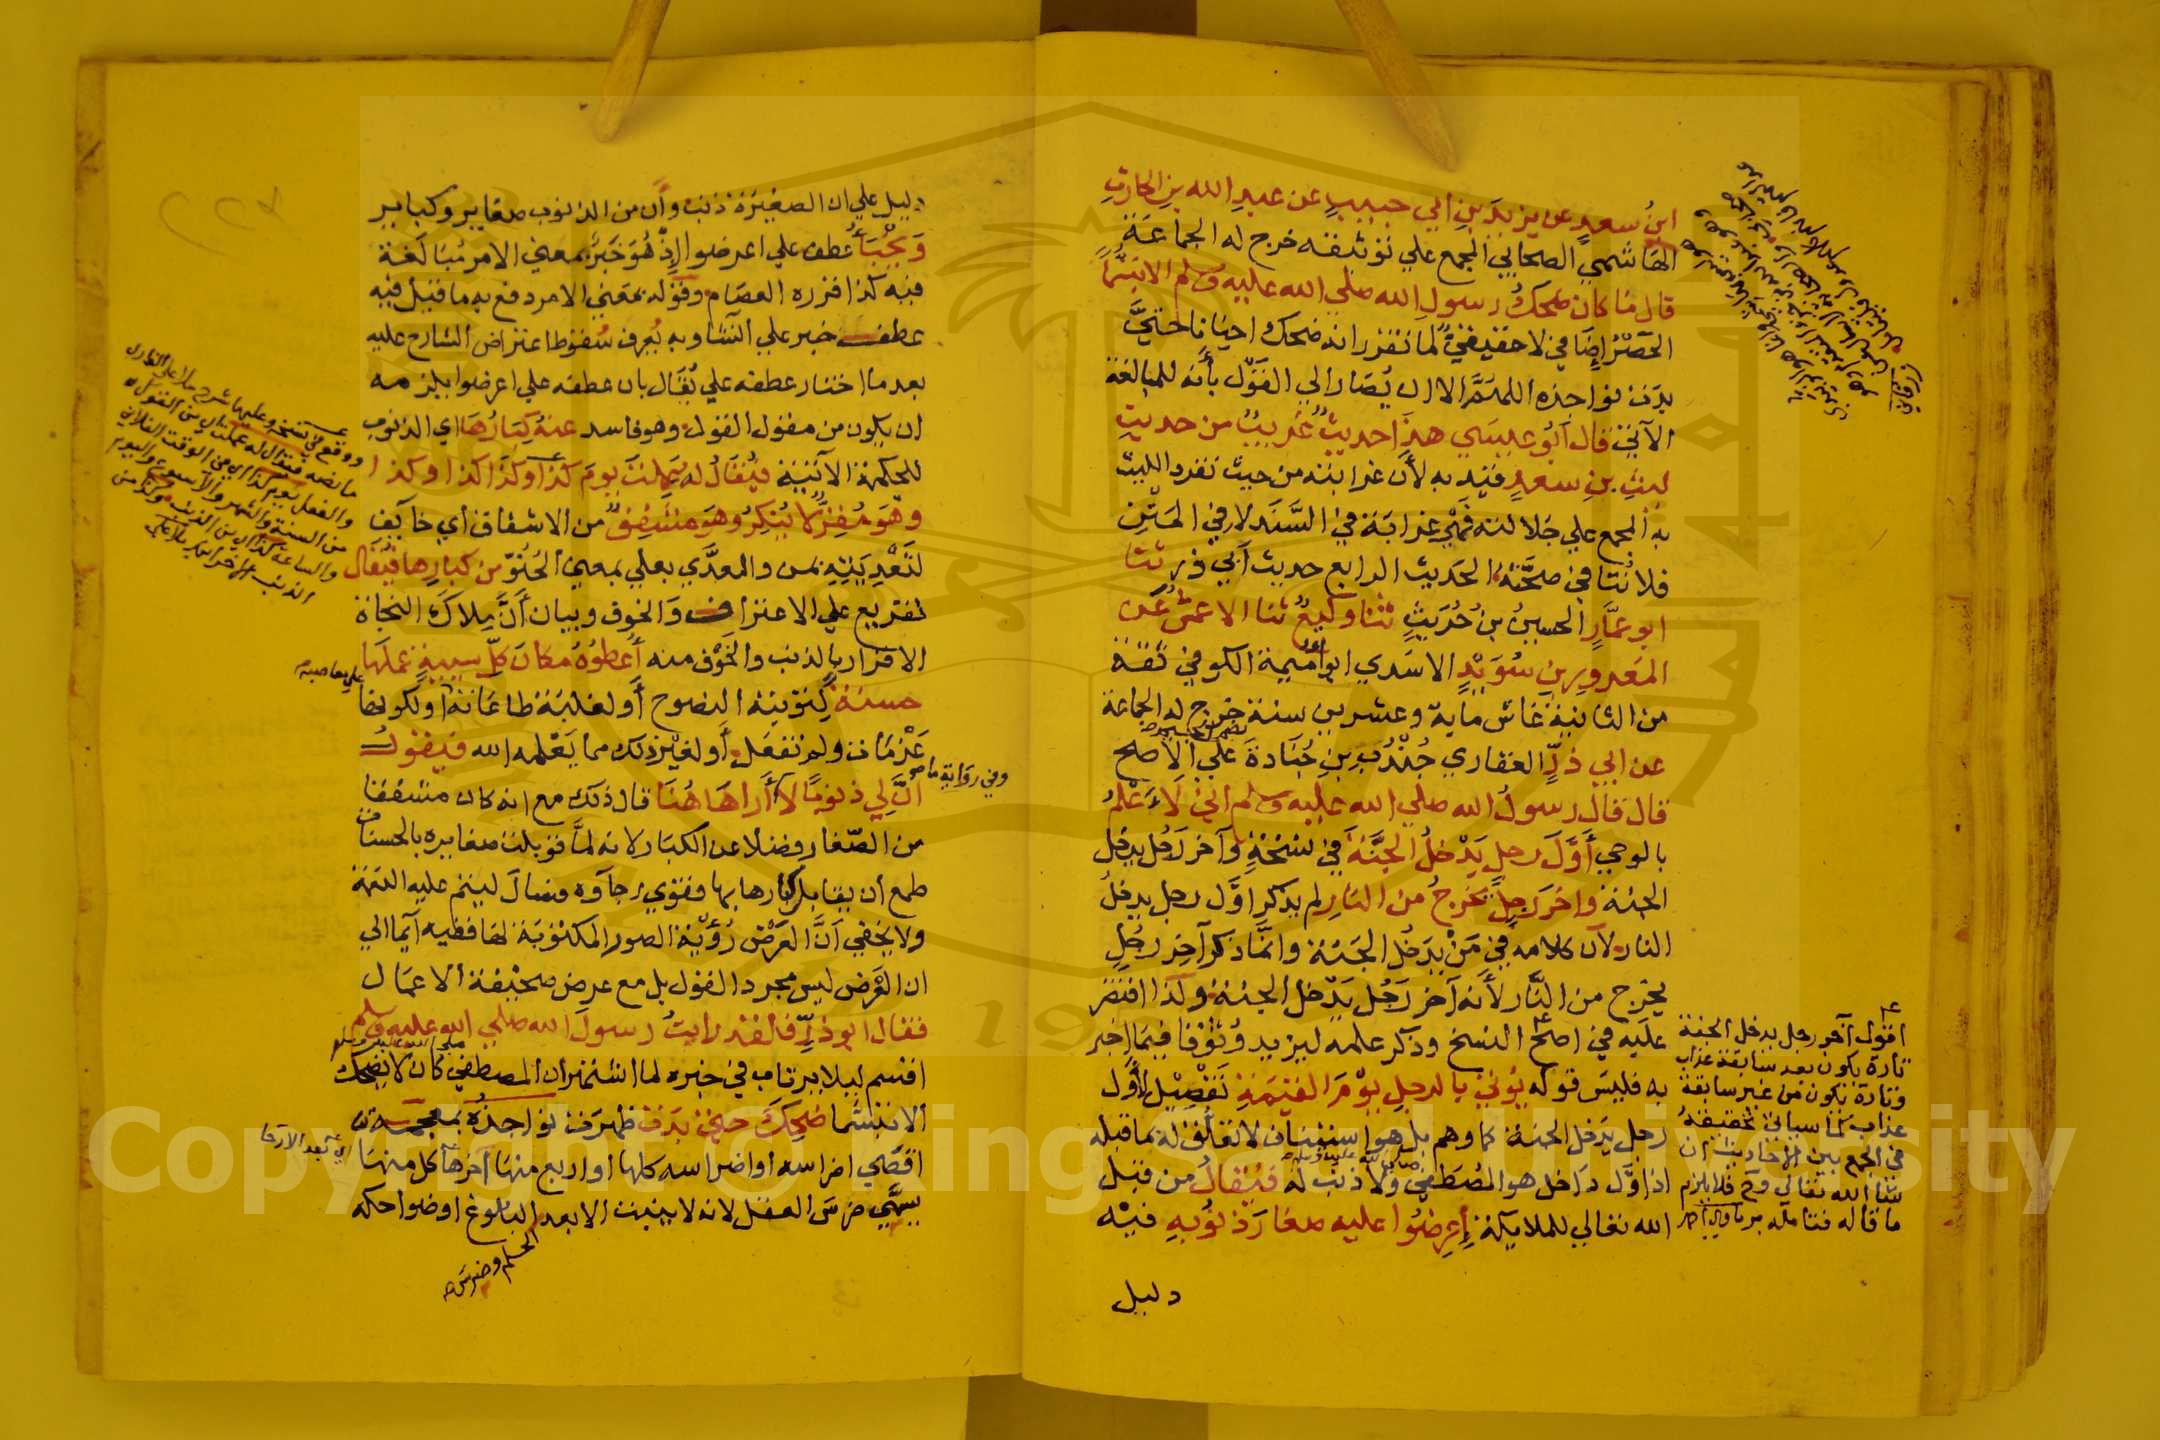 ابنُ سعدٍ عن يزيدَ بنِ ابي حبيبٍ عن عبدِ الله بنِ الحارثِ
الهاشمي الصحابي المجمع علي توثيقه خرج له الجماعة
قال ما كان ضحكُ رسولِ الله صلي الله عليه وسلم الا تبسُّماً
الحَصْرُ إضافي لا حقيقيٌ لما تقرر انه ضحك احيانا حتيَّ
بدت نواجذه اللهمَّ الا ان يُصَار الي القَوْل بأنه للمبالغة
الآتي قال ابُو عيسَي هذا حديثٌ غَريبٌ من حديثِ
ليثِ بنِ سعدٍ قيد به لأن غرابته من حيث تفرد الليث
به المجمع علي جلالته فهي غرابَة في السَّنَد لا في المَتنِ
فلا تُنَافي صحَّتهُ الحَديث الرابع حديث أبي ذر ثنا
ابو عمَّارٍ الحسينُ بنُ حُرَيثٍ ثنا وكيعٌ ثنا الاعمش عَن
المعرورِ بنِ سُوَيْدٍ الاسَدي ابو أميمة الكوفي ثقة
من الثانية عَاش ماية وعشرين سنة خرج له الجماعة
عن ابي ذرٍّ الغفاري جُنْدُبِ بنِ جُنَادةَ علَي الأصح
قال قال رسولُ الله صلي الله عليه وسلم انيْ لَاَعْلمُ
بالوحي أَوَّلَ رجلٍ يَدْخلُ الجنَّةَ في نسْخةٍ وآخرَ رَجُل يدخل
الجنة واخرَ رجلٍ يَخرجُ من النارِ لم يذكر اوَّل رجل يدخلُ
النار لان كلامه في مَنْ يدَخُل الجَنة وانمَّا ذكر آخِر رجُلِ
يخرج من النَّار لأنه آخر رَجُل يَدْخل الجنة ولذا اقتصر
عليه في اصح النسخ وذكر علمه ليزيد وُثوْقا فيمَا اخبر
به فليسَ قوله يُوتيْ بالرجلِ يوْمَ القيَمَةِ تَفْصِيْل لأَوَّل
رجل يَدخل الجنة كما وهم بل هو استئناف لا تعلُّقَ له بما قبله
اذ اوَّل دَاخل هو المُصْطَفي ولا ذنب له فيُقالُ من قبَل
الله تعالي للملايكة إِعرِضُوا عليه صغارَ ذنُوبهِ فيْه
دليل
اقول آخر رجل يدخل الجنة
تارة يكون بعد سابقة عذاب
وتارة يكون من غير سابقة
عذاب كما سياتي تحقيقهُ
في الجمع بين الاحاديث ان
شا الله تعالي وح فلا يلزم
ما قاله فتامله
دليل علي ان الصغيرَة ذنبٌ وأن من الذنوب صغاير وكباير
وَيُخْبَأ عُطف علي اعرضوا إذْ هُوَ خَبَرٌ بمعني الامر مُبَالغة
فيه كذا قرره العصَام وقوْله بمعَني الامر دفع به ما قيل فيه
عطف خبر علي انشَا وبه يُعرف سُقوط اعتراض الشارح عليه
بعد ما اختار عطفه علي يُقَال بان عطفه علي اعرضوا يلزمه
ان يكون من مقول القول وهو فاسد عنهُ كبَارُهَا اي الذنوب
للحكمة الآتية فيُقَالُ له عَمِلتَ يومَ كذَا وكذَا كذا وكذا
وهوَ مُقِرٌّ لا يُنْكِرُ وهوَ مشفِقٌ من الاشفاق أي خايف
لتَعْدِيَتِهِ بمن والمعدَّي بعلي بمعني الحُنُوّ من كبارِها فيُقال
تفريع علي الاعتراف وَالخوف وبيان أَنَّ مِلاكَ النجَاة
الاقرار بالذنب والخَوْف منه أَعْطُوْهُ مكانَ كلِّ سيئةٍ عملَها
حسنةً لتوْبته النصُوح أو لغلبَة طاعَاته أو لكونها
عَزْمَات ولم تفعل أو لغيْر ذلك مما يَعْلمه الله فيقولُ
انَّ لي ذنوبًا لا أراهَا هُنَا قال ذلك مع انه كان مشفقا
من الصّغار فضلا عن الكبَار لانه لمَّا قوبلت صغايره بالحسنات
طمع أن يقابل كبارها بها وقوي رجاؤه وسَال ليتم عليه النعمة
ولا يخفي اَنَّ العَرْضَ رُؤيْة الصور المكتوبَة لها ففيه ايمَا الي
ان العَرْض ليس مجرد القول بل مع عرض صحيفة الاعمال
فقال ابو ذرٍّ فلقد رايتُ رسولَ الله صلي الله عليه وسلم
اقسم ليلا يرتاب في خبره لما اشتهر ان المصطفي كان لا يضحك
الا تبسُّما ضحِكَ حتيْ بدَت ظهرَت نواجذُه بمعجمة
اقصَي اضراسه أو اضراسه كلها أو اربع منها آخرها كل منهَا
يسَمَّي ضرسَ العقل لانه لا ينبت الا بعد البلوغ او ضواحكه
الحلم وضرسَ
وفي رواية ما
علي معاصيه
ووقع في نسخة وعليها شرح ملا علي القاري